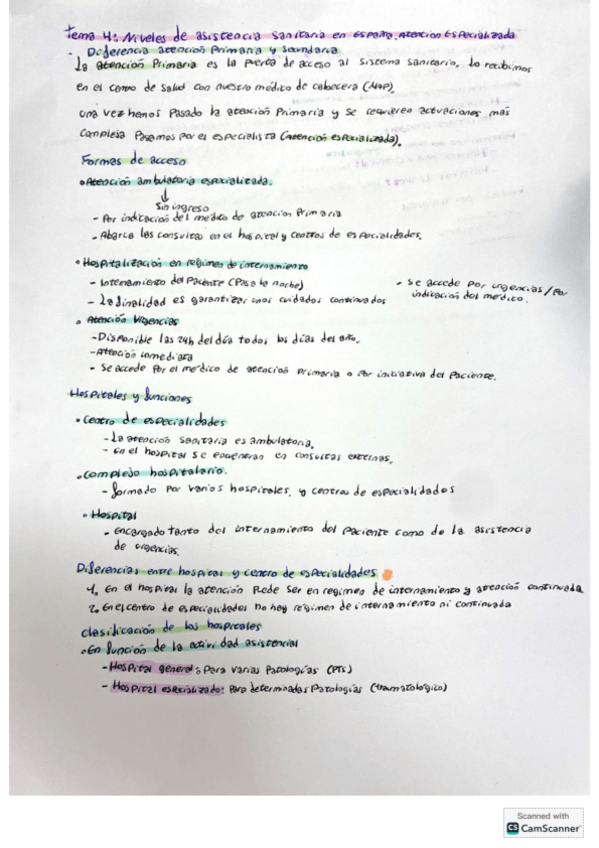 Tema 4: Niveles de asistencia sanitaria en España. Atención Especializada
- Diferencia atención Primaria y Secundaria
La atención Primaria es la puerta de acceso al sistema sanitario. Lo recibimos
en el centro de salud con nuestro médico de cabecera (MAP).
Una vez hemos pasado la atención Primaria y se requieren actuaciones más
compleja Pasamos por el especialista (Atención especializada).
Formas de acceso
• Atención ambulatoria especializada.
↓
Sin ingreso
- Por indicación del medico de atención Primaria
- Abarca las consultas en el hospital y centros de especialidades.
• Hospitalización en régimen de internamiento
- Internamiento del Paciente (Pasa la noche)
- La finalidad es garantizar unos cuidados continuados
- Se accede por urgencias/por
indicación del médico.
• Atención Urgencias
- Disponible las 24h del día todos los días del año.
- Atención inmediata
- Se accede por el medico de atención Primaria o por iniciativa del Paciente.
Hospitales y funciones
• Centro de especialidades
- La atención sanitaria es ambulatoria.
- En el hospital se encuentran en consultas externas.
• Complejo hospitalario.
- formado por varios hospitales, y centros de especialidades
• Hospital
• Encargado tanto del internamiento del paciente como de la asistencia
de urgencias.
Diferencias entre hospital y centro de especialidades
1. En el hospital la atención Puede ser en regimen de internamiento y atención continuada
2. En el centro de especialidades no hay régimen de internamiento ni continuada
Clasificación de los hospitales
• En función de la actividad asistencial
- Hospital general: Para varias Patologías (PTS)
- Hospital especializado: Para determinadas Patologías (traumatologico)
Scanned with
CS CamScanner